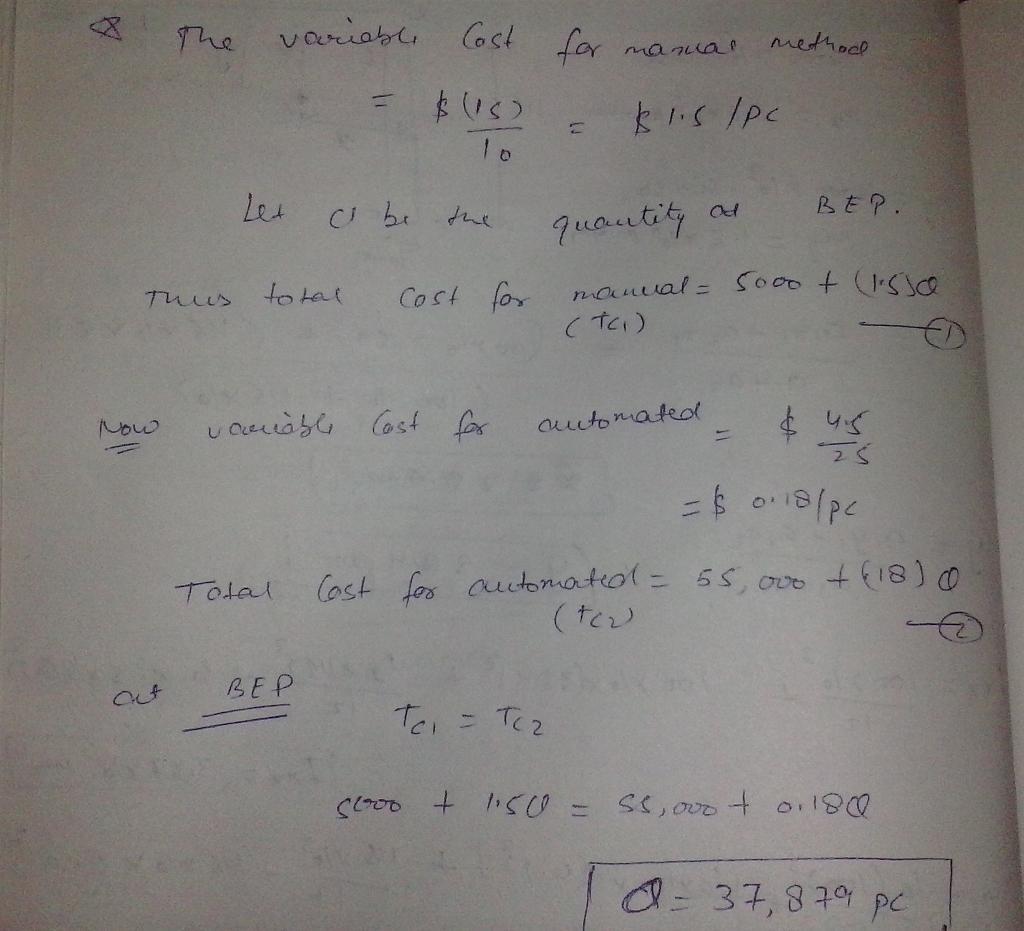 Q The variable Cost for manual method
= $ (15) / 10 = $ 1.5 /pc
Let Q be the quantity at BEP.
Thus total cost for manual = 5000 + (1.5)Q
(TC1) — 1
Now variable Cost for automated = $ 4.5 / 25
= $ 0.18/pc
Total Cost for automated = 55,000 + (.18) Q
(TC2) — 2
at BEP
TC1 = TC2
5000 + 1.5Q = 55,000 + 0.18Q
Q = 37,879 pc